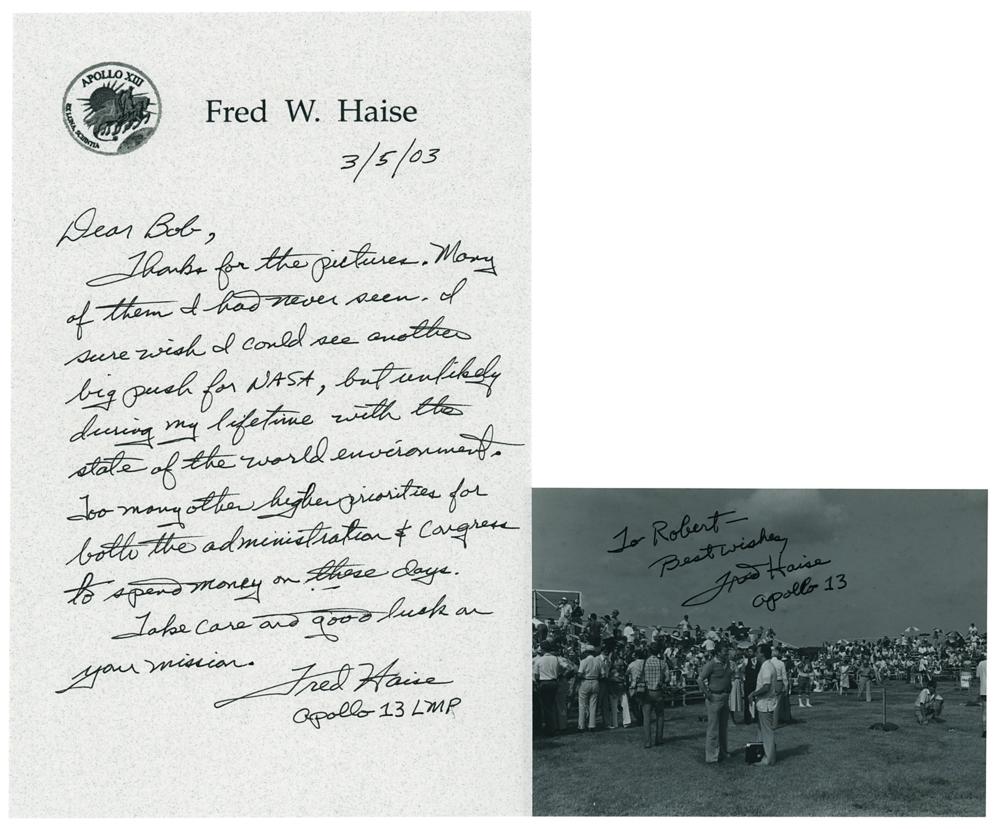 APOLLO XIII
EX LUNA, SCIENTIA
Fred W. Haise
3/5/03
Dear Bob,
Thanks for the pictures. Many
of them I had never seen. I
sure wish I could see another
big push for NASA, but unlikely
during my lifetime with the
state of the world environment.
Too many other higher priorities for
both the administration & Congress
to spend money on these days.
Take care and good luck on
your mission.
Fred Haise
Apollo 13 LMP
To Robert—
Best wishes
Fred Haise
Apollo 13